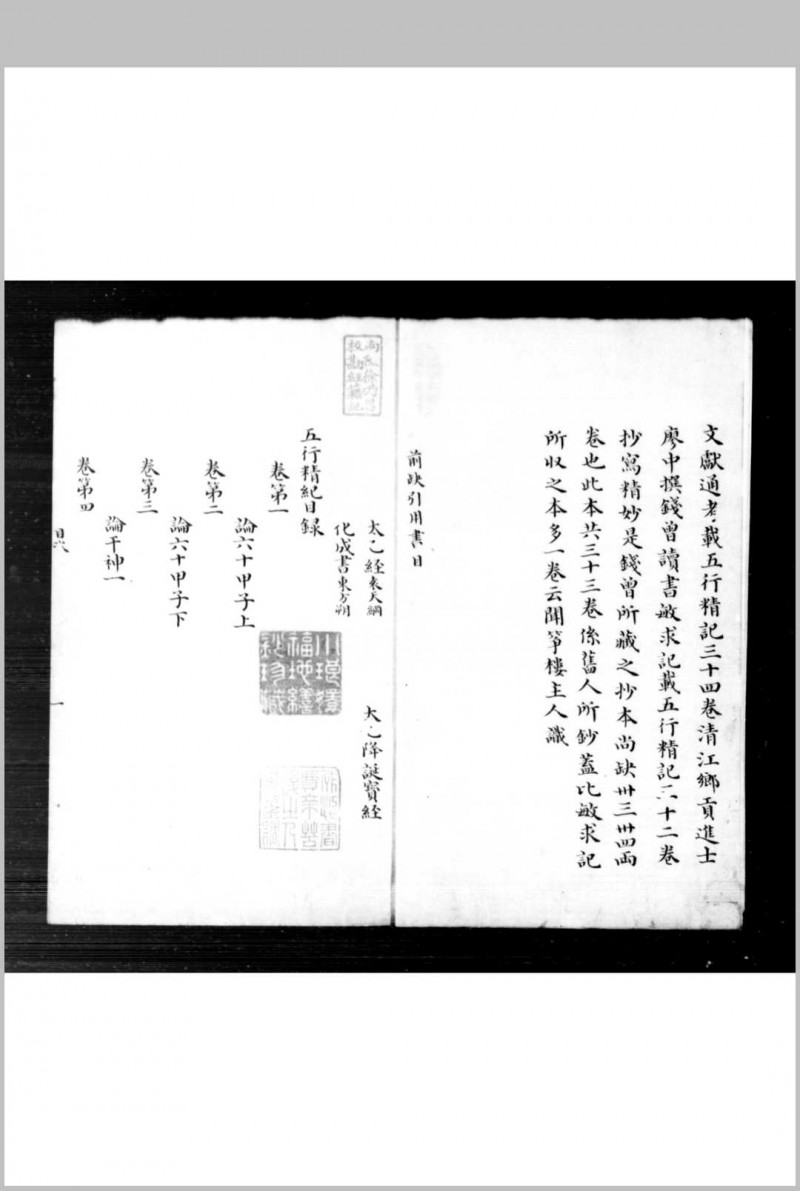 文獻通考載五行精記三十四卷清江鄉貢進士
廖中撰錢曾讀書敏求記載五行精記三十二卷
抄寫精妙是錢曾所藏之抄本尚缺卅三卅四兩
卷也此本共三十三卷係舊人所鈔蓋比敏求記
所收之本多一卷云開箏樓主人識
前缺引用書目
太乙經袁天綱 太乙降誕寶經
化成書東方朔
五行精紀目録
卷第一
論六十甲子上
卷第二
論六十甲子下
卷第三
論干神一
卷第四
目六
一
小瑯嬛
福地繕
鈔珍藏